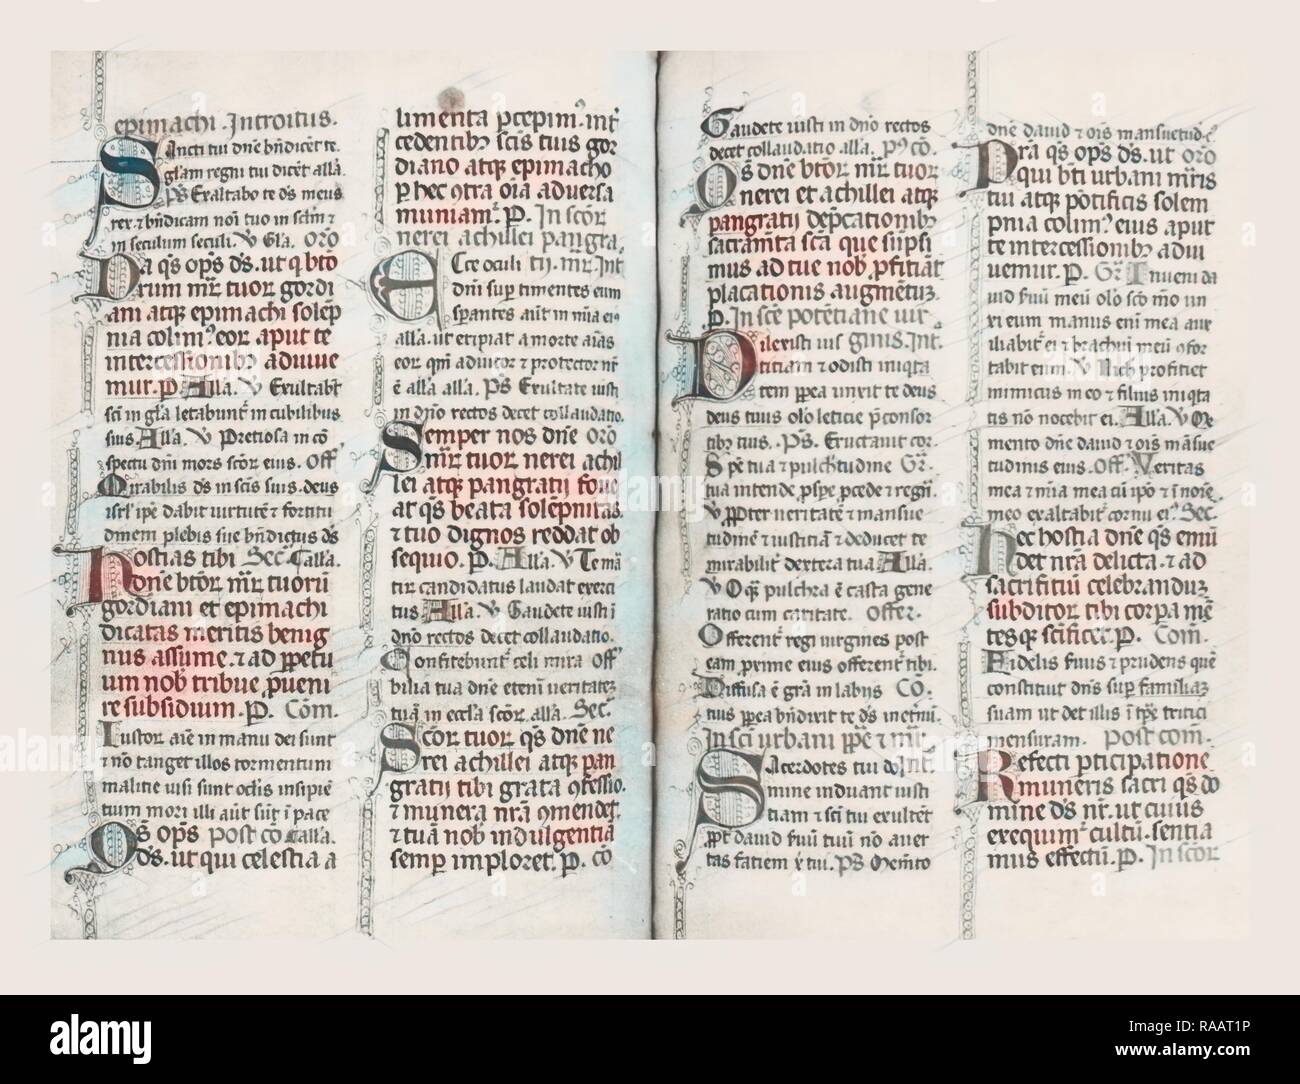 epimachi. Introitus.
Sancti tui dn̄e bn̄dicēt te.
glam̄ regni tui dicēt all̄a.
p̄s Exaltabo te ds̄ meus
rex ⁊ bn̄dicam noī tuo in sclm̄ ⁊
in seculum seculi. V̄ Gla. oro
Da qs̄ ops̄ ds̄. ut q bt̄o
rum mr̄ tuor gordi
ani atqꝫ epimachi solēp
nia colim̄ꝰ eor aput te
intercessionibꝫ adiuue
mur. p. All̄a. V̄ Exultabt̄
sci in gl̄a letabunt̄ in cubilibus
suis. All̄a. V̄ Pretiosa in cō
spectu dn̄i mors scōr eius. Off̄
Mirabilis ds̄ in scis suis. deus
isrl̄ ipē dabit uirtutē ⁊ fortitu
dinem plebis sue bn̄dictus ds̄
Hostias tibi Sec̄. all̄a.
dn̄e bt̄or mr̄ tuorū
gordiani et epimachi
dicatas meritis benig
nus assume. ⁊ ad ꝑpetu
um nob tribue p̄ueni
re subsidium. P. Cōm.
Iustor aīe in manu dei sunt
⁊ nō tanget illos tormentum
malitie uisi sunt oclis insipiē
tium mori illi aūt sūt ī pace
Qs̄ ops̄ post cō all̄a.
ds̄. ut qui celestia a
limenta pcepimꝰ. int̄
cedentibꝫ scis tuis gor
diano atqꝫ epimacho
p hec ꝯtra oīa aduersa
muniam̄ꝰ. P. In scōr
nerei achillei pangra.
Ecce oculi tn̄. mr̄. Int̄
dn̄i sup timentes eum
spantes aūt in mīa eiꝰ
alla. ut eripiat a morte aīas
eor qm̄ adiutor ⁊ protector nr̄
ē alla alla. ps̄ Exultate iusti
in dn̄o rectos decet collaudatio.
Semper nos dn̄e oro
mr̄ tuor nerei achil
lei atqꝫ pangratij foue
at qs̄ beata solēpnitas
⁊ tuo dignos reddat ob
sequio. P. All̄a. V̄ Te mā
tir candidatus laudat exerci
tus All̄a. V̄ Gaudete iusti ī
dn̄o rectos decet collaudatio.
Confitebunt̄ celi mira Off̄
bilia tua dn̄e eteni ueritateꝫ
tuā in ecclā scōr. alla. Sec̄.
Scōr tuor qs̄ dn̄e ne
rei achillei atqꝫ pan
gratij tibi grata ꝯfessio.
⁊ munera nr̄a ꝯmendet.
⁊ tuā nob indulgentiā
semp imploret. P. cō
Gaudete iusti in dn̄o rectos
decet collaudatio alla. pꝰ cō.
Qs̄ dn̄e bt̄or mr̄ tuor
nerei et achillei atqꝫ
pangratij dep̄cationibꝫ
sacram̄ta scā que sūpsi
mus ad tue nob. pfitiāt
placationis augmētuꝫ.
P. In scē potētiane uir
Dilexisti ius ginis. Int̄.
titiam ⁊ odisti iniqta
tem ppea unxit te deus
deus tuus oleo leticie p̄ consor
tibꝫ tuis. Ps̄. Eructauit cor.
Spē tua ⁊ pulchtudine Gr̄.
tua intende. pspe. pcede ⁊ regn̄.
V̄ ppter ueritatē ⁊ mansue
tudinē ⁊ iustitiā ⁊ deducet te
mirabilit̄ dextera tua All̄a.
V̄ O qꝫ pulchra ē casta gene
ratio cum caritate. Offer.
Offerent̄ regi uirgines post
eam p̄xime eius offerent̄ tibi.
Diffusa ē grā in labijs Cō.
tuis ppea bn̄dixit te ds̄ in et̄nū.
In sci urbani pp̄e ⁊ mr̄.
Sacerdotes tui dn̄e Int̄.
mine induant iusti
tiam ⁊ sci tui exultēt
ppt̄ dauid fruū tuū nō auer
tas fatiem xp̄i tui. Ps̄ Mem̄to
dn̄e dauid ⁊ oīs mansuetud.ꝰ
Da qs̄ ops̄ ds̄. ut oro
qui bt̄i urbani mr̄is
tui atqꝫ pōtificis solem
pnia colimꝰ. eius aput
te intercessionibꝫ adiu
uemur. P. Gr̄. Inueni da
uid fruū meū oleo sco meo un
xi eum manus eni mea auxi
iliabit̄ ei ⁊ brachiū meū ꝯfor
tabit eum. V̄ Nich profitiet
inimicus in eo ⁊ filius iniqta
tis nō nocebit ei. All̄a. V̄ Me
mento dn̄e dauid ⁊ oīs māsue
tudinis eius. Off̄. Veritas
mea ⁊ mīa mea cū ipō ⁊ ī noīe.
meo exaltabit̄ cornu eiꝰ. Sec̄
Hec hostia dn̄e qs̄ emū
det nr̄a delicta. ⁊ ad
sacrifitiū celebranduꝫ
subditor tibi corpa mē
tesqꝫ sc̄ificet. P. Cōm̄.
Fidelis fruus ⁊ prudens quē
constituit dns̄ sup familiaꝫ
suam ut det illis ī tpē tritici
mensuram. Post com̄.
Refecti pticipatione
muneris sacri qs̄ do
mine ds̄ nr̄. ut cuius
exequimꝰ cultū. sentia
mus effectū. P. In scōr
alamy
Image ID: RAAT1P
www.alamy.com